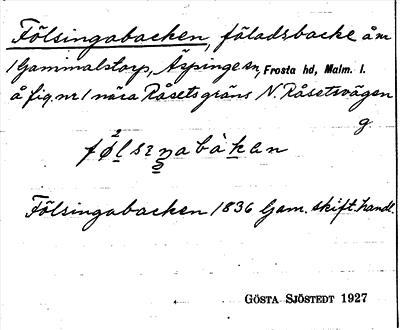 Fölsingabacken, fäladsbacke å nr
1 Gammalstorp, Äspinge sn, Frosta hd, Malm. l.
å fig. nr 1 nära Råsets gräns N. Råsetsvägen
g
Fölsingabacken 1836 Gam. skift. handl.
GÖSTA SJÖSTEDT 1927